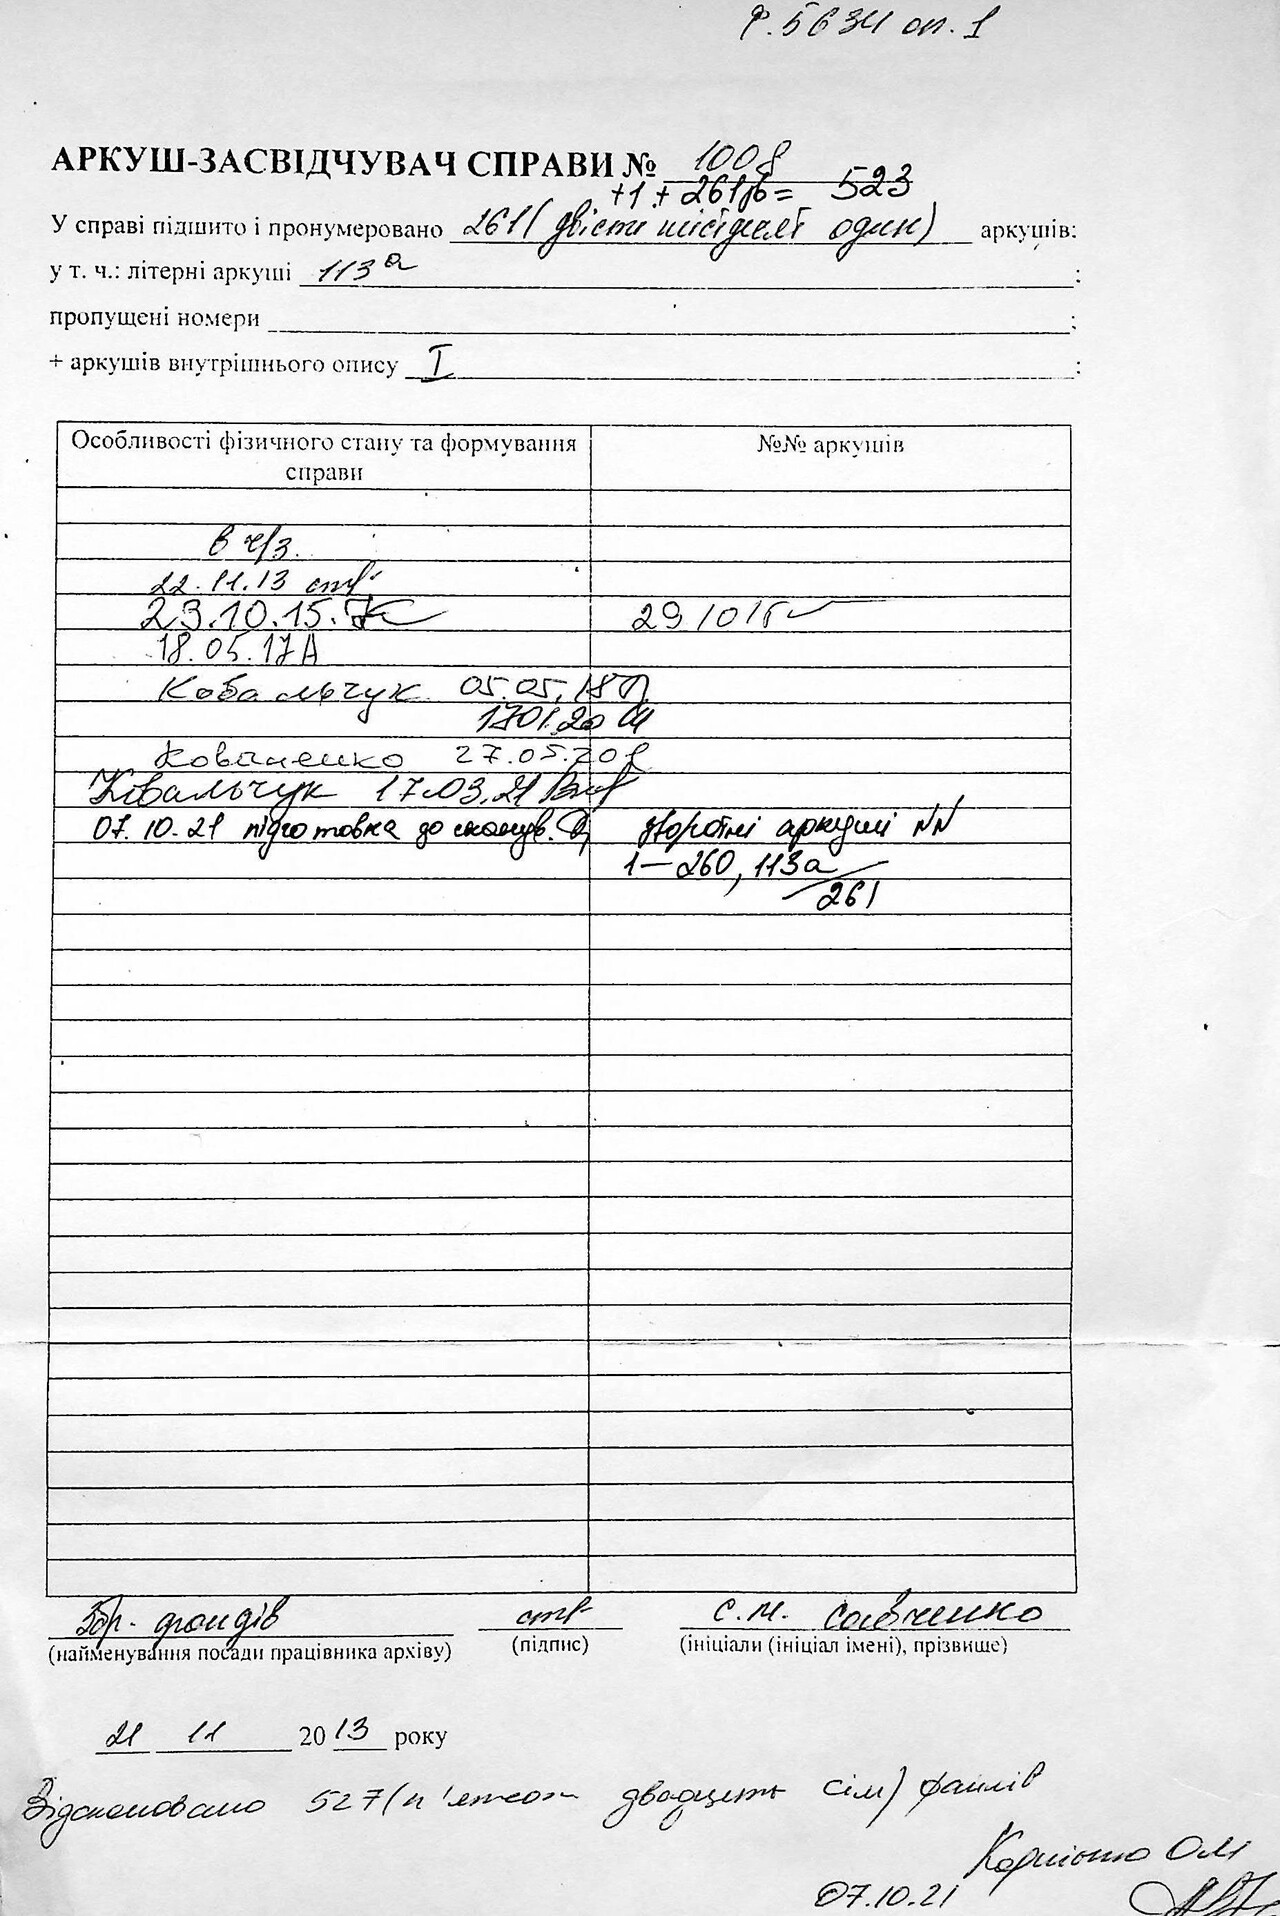 Ф. 5634 оп. 1
АРКУШ-ЗАСВІДЧУВАЧ СПРАВИ № 1008
+1 + 261 = 523
У справі підшито і пронумеровано 261 (двісті шістдесят один) аркушів:
у т. ч.: літерні аркуші 113а ;
пропущені номери ;
+ аркушів внутрішнього опису I ;
Особливості фізичного стану та формування справи
№№ аркушів
в ч/з.
22.11.13
23.10.15.
29/01
18.05.17А
Ковальчук 05.05.18
17.01.20
27.05.20
Ковальчук 17.03.21
07.10.21 підготовка до сканув. зворотні аркуші NN
1–260, 113а
261
Збр. фондів С.М. Савченко
(найменування посади працівника архіву) (підпис) (ініціали (ініціал імені), прізвище)
21 11 2013 року
Відскановано 527 (п'ятсот двадцять сім) файлів
О.М
07.10.21